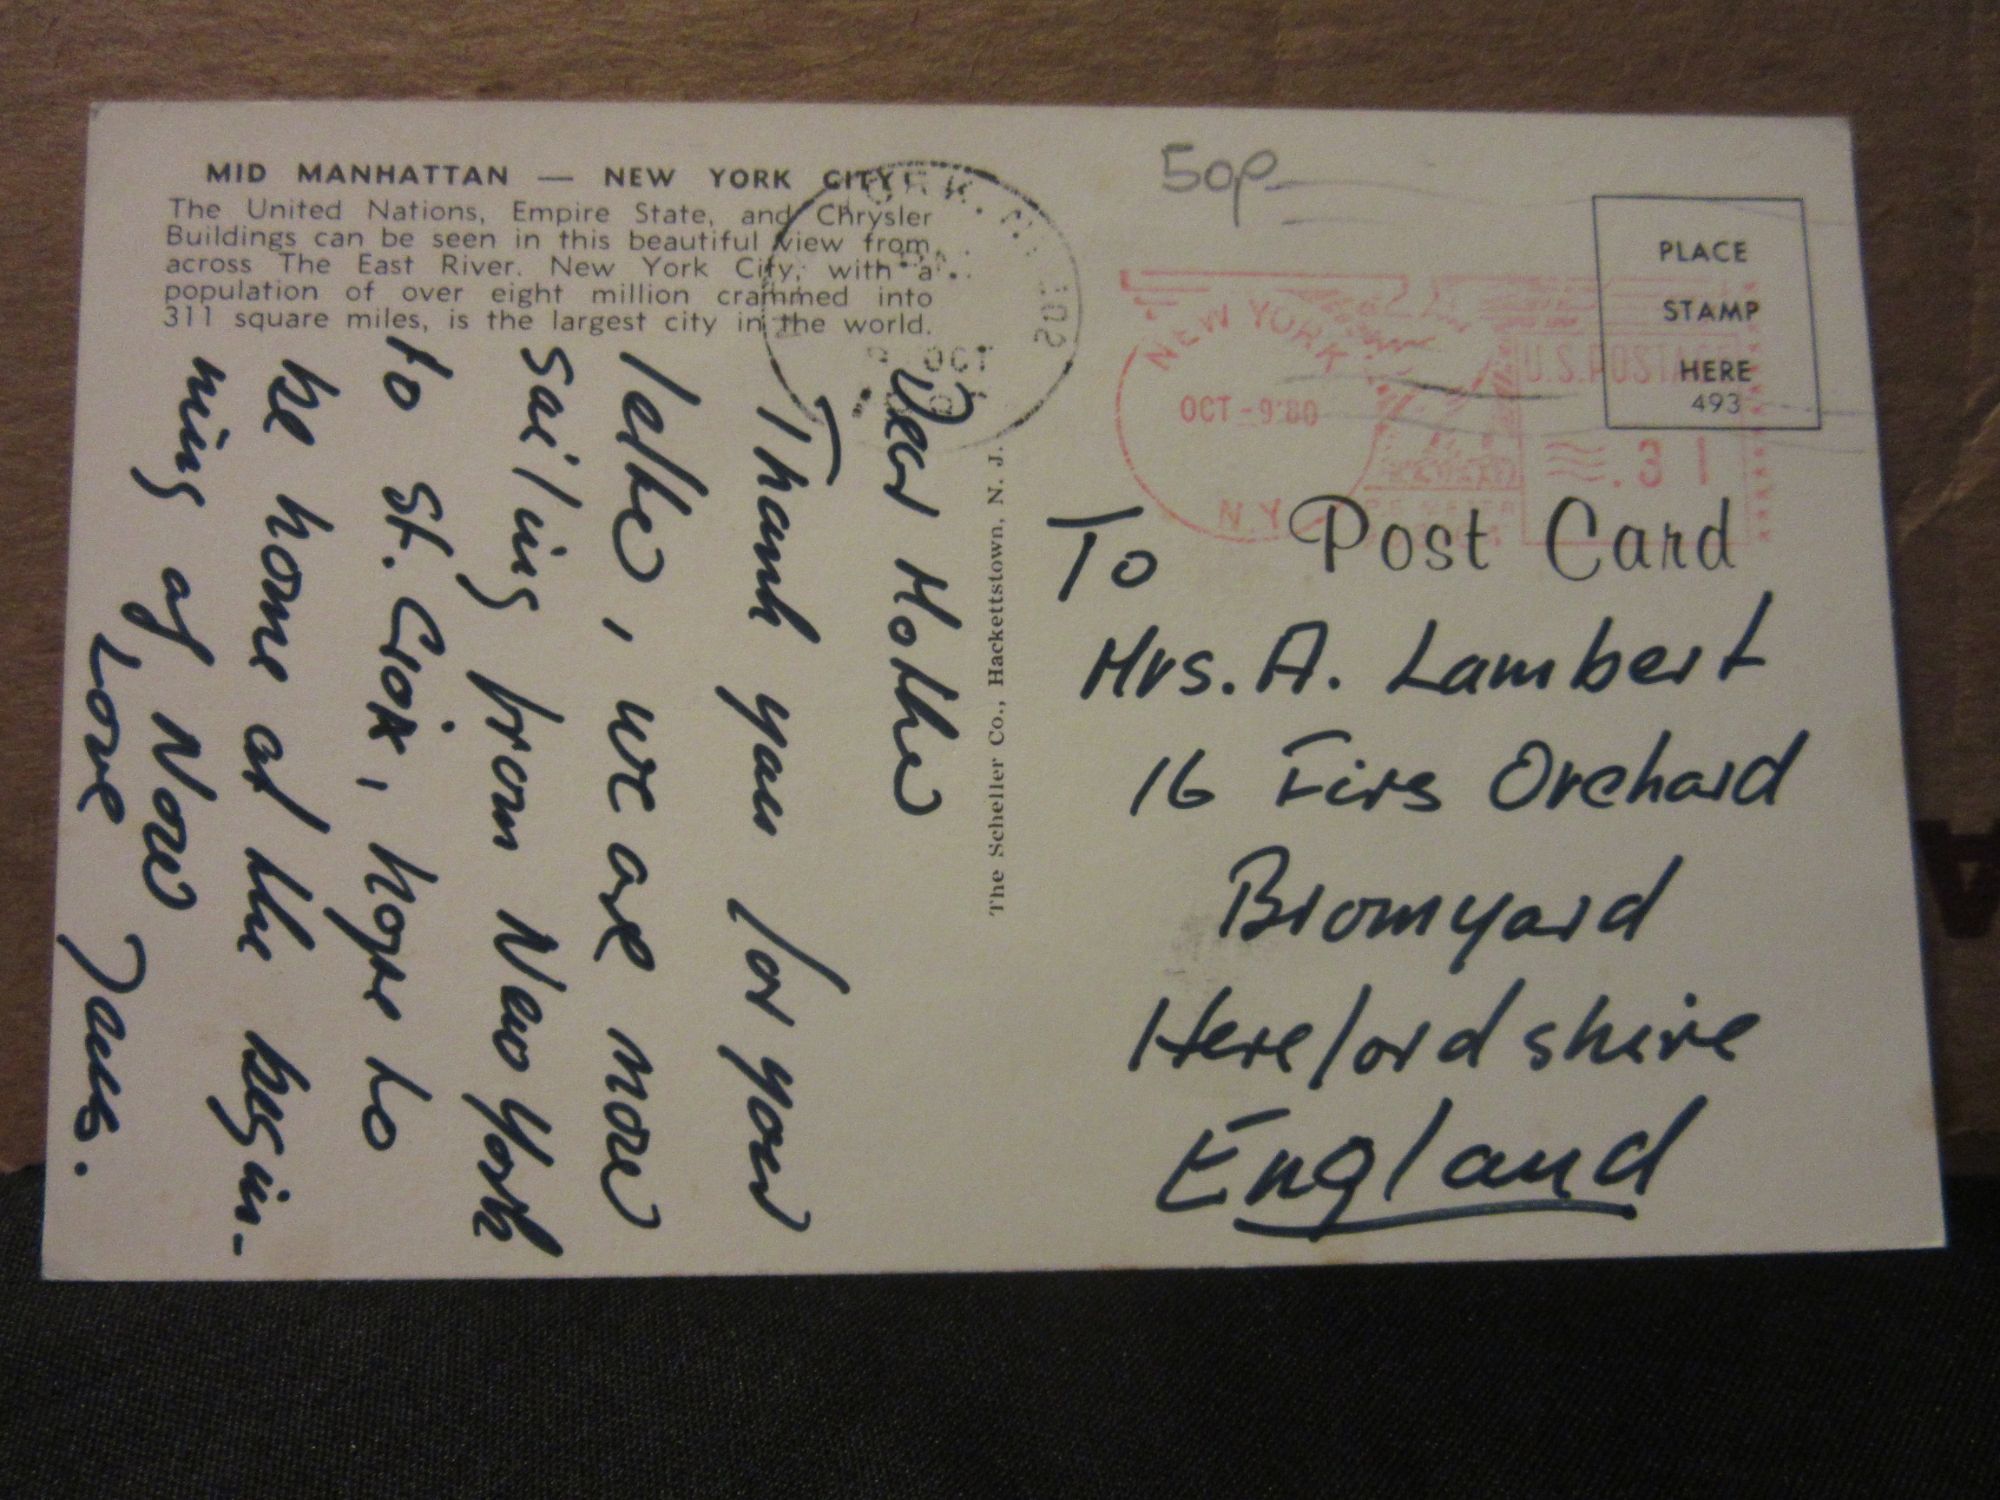 MID MANHATTAN — NEW YORK CITY
The United Nations, Empire State, and Chrysler
Buildings can be seen in this beautiful view from
across The East River. New York City, with a
population of over eight million crammed into
311 square miles, is the largest city in the world.
Dear Mother
Thank you for your
letter, we are now
sailing from New York
to St. Croix, hope to
be home at the begin-
ning of Nov
Love
The Scheller Co., Hackettstown, N. J.
50p
PLACE
STAMP
HERE
493
NEW YORK
OCT -9'80
N.Y.
U.S. POSTAGE
.31
OCT
Post Card
To
Mrs. A. Lambert
16 Firs Orchard
Bromyard
Herefordshire
England